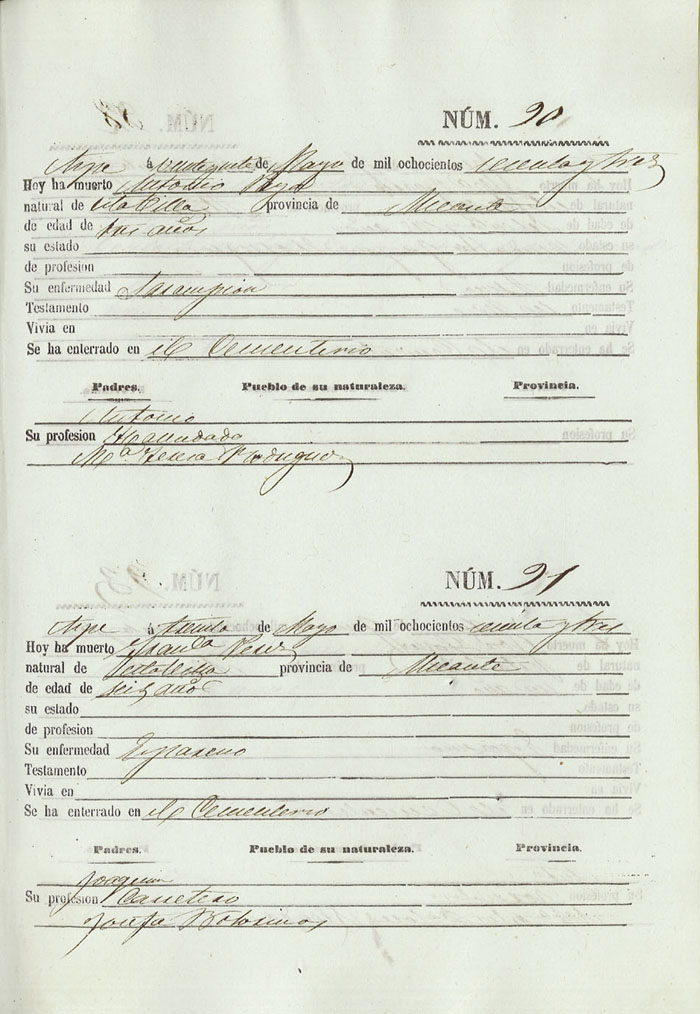 NÚM. 90
Aspe á veintegunte de Mayo de mil ochocientos sesenta y tres
Hoy ha muerto Antonio
natural de esta Villa provincia de Alicante
de edad de tres años
su estado
de profesion
Su enfermedad Sarampion
Testamento
Vivia en
Se ha enterrado en el Cementerio
Padres. Pueblo de su naturaleza. Provincia.
Antonio
Su profesion Hacendado
Mª Teresa
NÚM. 91
Aspe á treinta de Mayo de mil ochocientos senta y tres
Hoy ha muerto Perez
natural de esta Villa provincia de Alicante
de edad de seis años
su estado
de profesion
Su enfermedad
Testamento
Vivia en
Se ha enterrado en el Cementerio
Padres. Pueblo de su naturaleza. Provincia.
Joaquin
Su profesion Carretero
Josefa